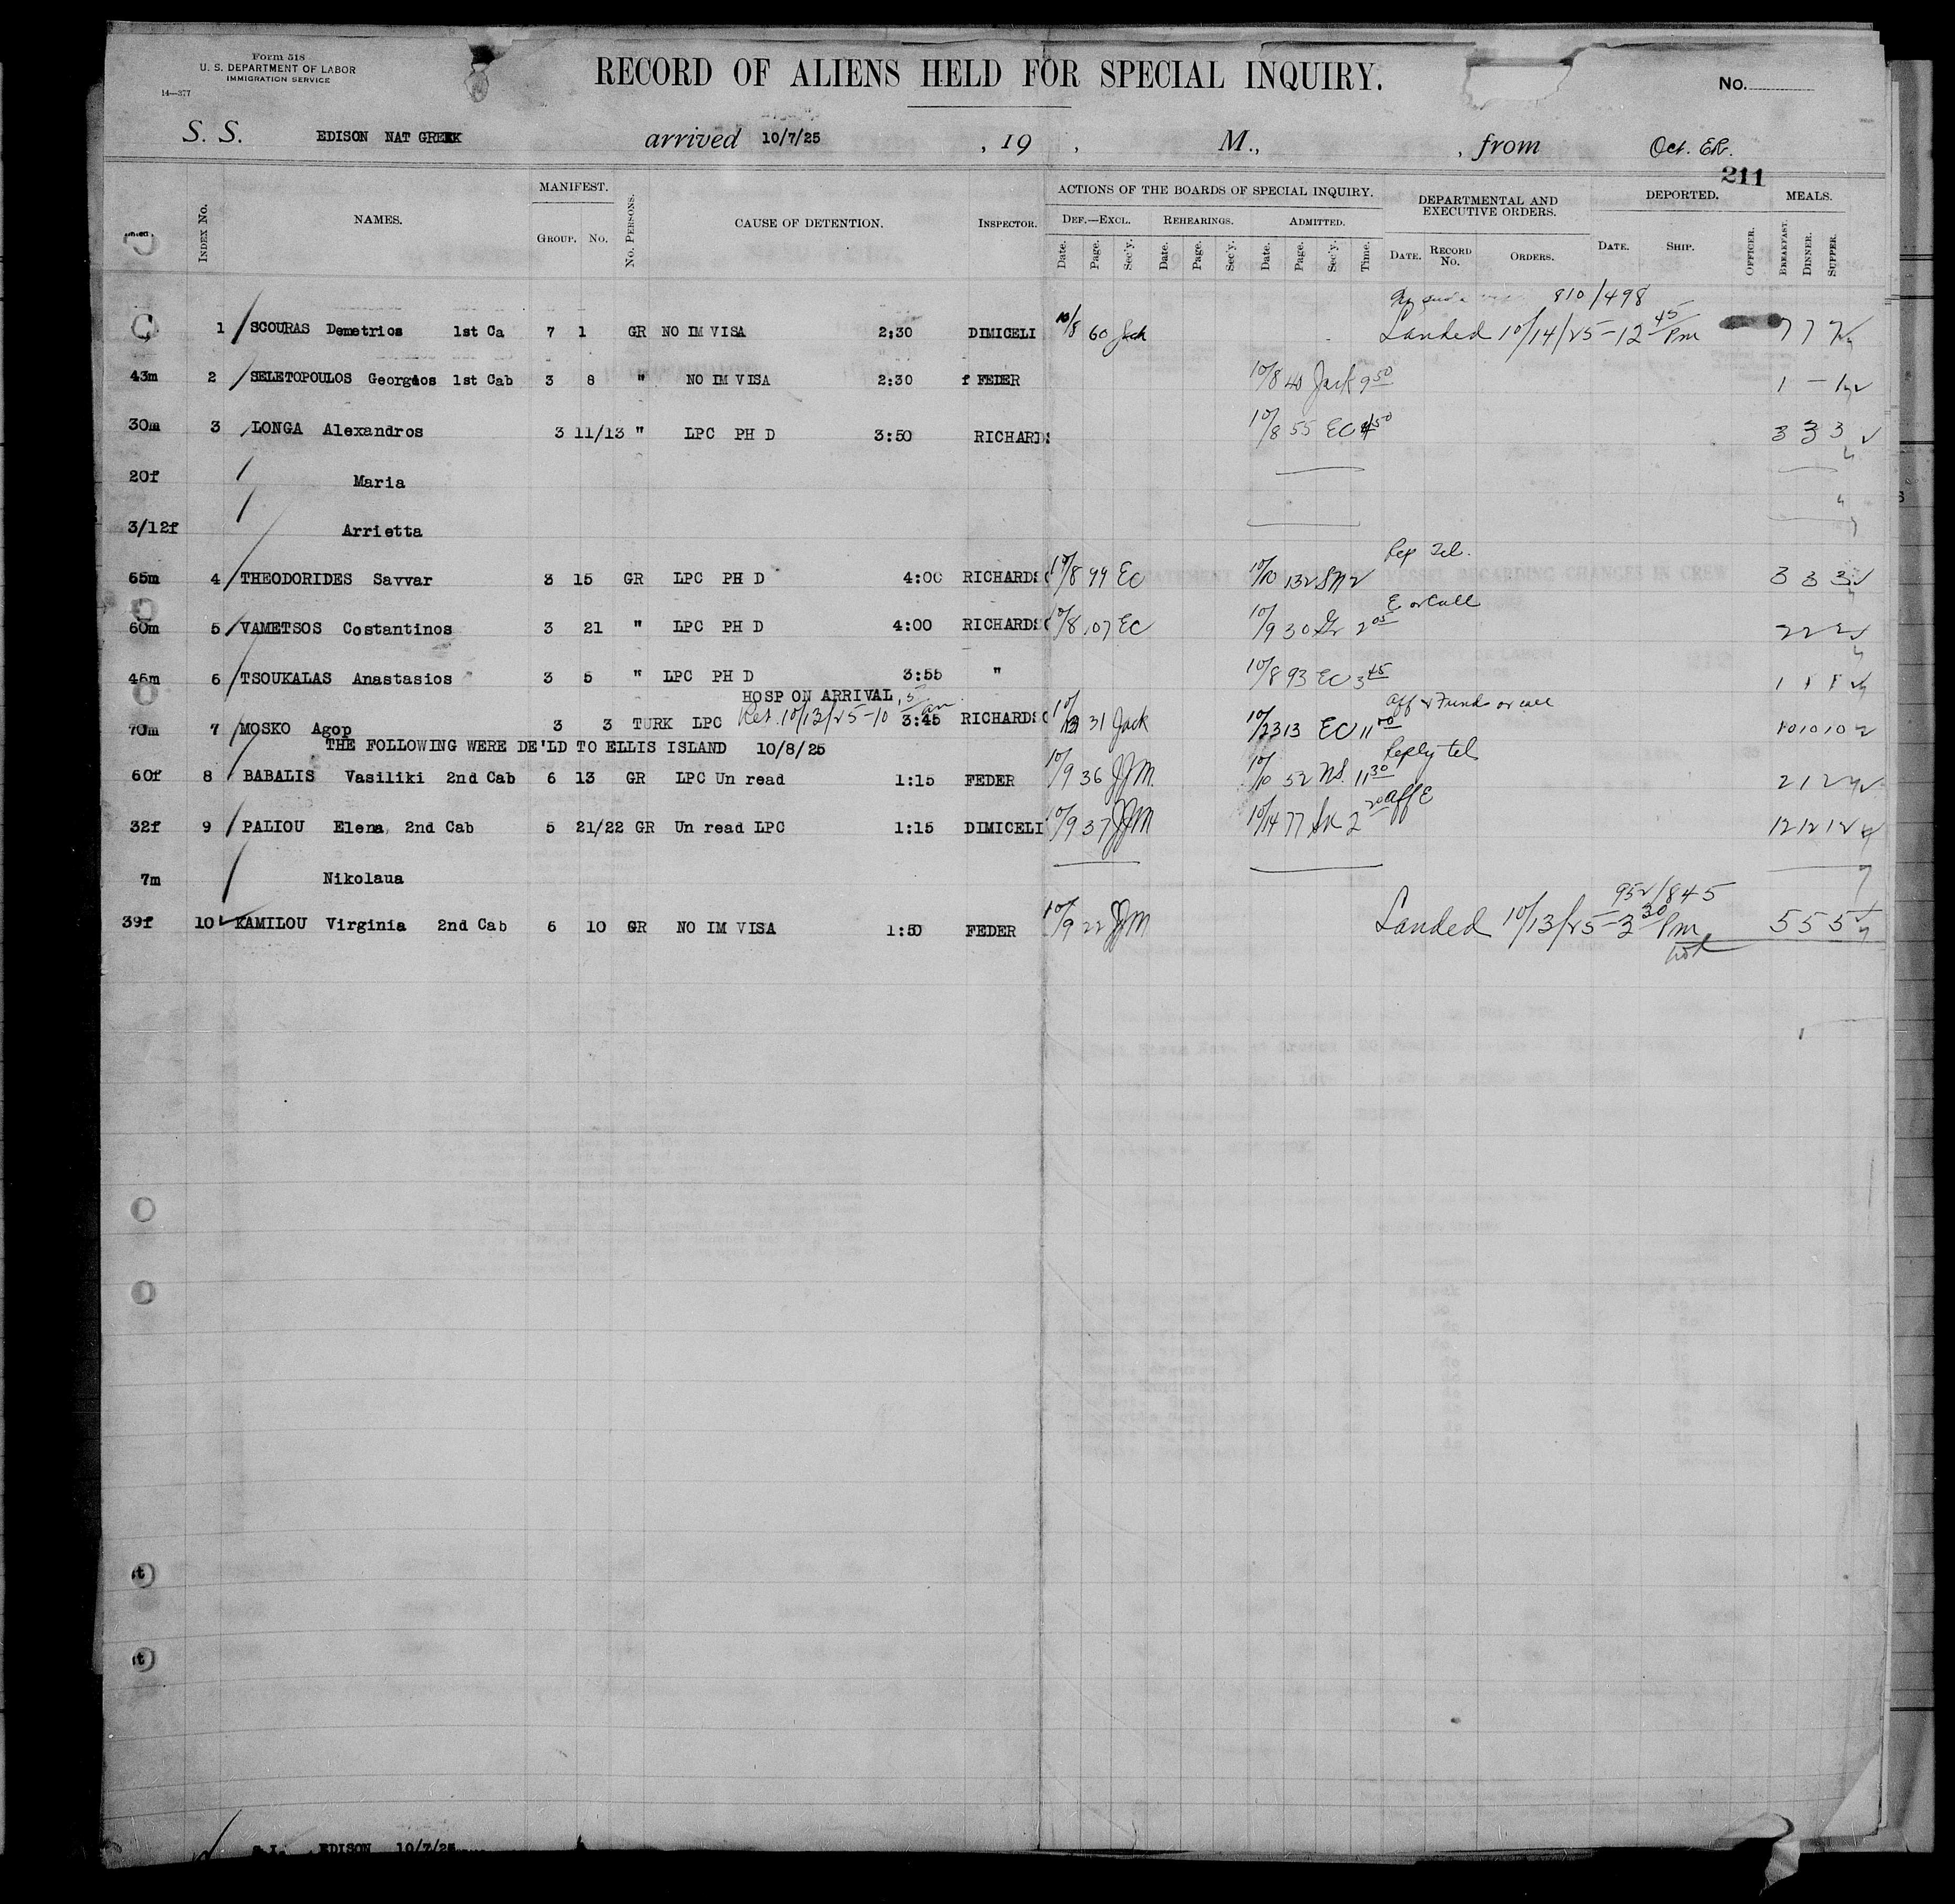 Form 518
U. S. DEPARTMENT OF LABOR
IMMIGRATION SERVICE
14—377
RECORD OF ALIENS HELD FOR SPECIAL INQUIRY.
No.
S. S. EDISON NAT GREEK arrived 10/7/25 , 19 , M., , from Oct. ER.
211
INDEX No. NAMES. MANIFEST. GROUP. NO. No. PERSONS. CAUSE OF DETENTION. INSPECTOR. ACTIONS OF THE BOARDS OF SPECIAL INQUIRY. DEPARTMENTAL AND EXECUTIVE ORDERS. DEPORTED. MEALS.
DEF.—EXCL. REHEARINGS. ADMITTED.
Date. Page. Sec'y. Date. Page. Sec'y. Date. Page. Sec'y. Time. DATE. RECORD NO. ORDERS. DATE. SHIP. OFFICER. BREAKFAST. DINNER. SUPPER.
810/498
1 SCOURAS Demetrios 1st Ca 7 1 GR NO IM VISA 2:30 DIMICELI 10/8 60 Jack Landed 10/14/25-12 45 Pm 7 7 7
43m 2 SELETOPOULOS Georgios 1st Cab 3 8 " NO IM VISA 2:30 f FEDER 10/8 40 Jack 9 50 1 – 1
30m 3 LONGA Alexandros 3 11/13 " LPC PH D 3:50 RICHARDS 10/8 55 EC 4 50 3 3 3
20f Maria
3/12f Arrietta
Rep Tel.
65m 4 THEODORIDES Savvar 3 15 GR LPC PH D 4:00 RICHARDSO 10/8 99 EC 10/10 132 3 3 3
E or Call
60m 5 VAMETSOS Costantinos 3 21 " LPC PH D 4:00 RICHARDSO 10/8 107 EC 10/9 30 2 05 2 2 2
45m 6 TSOUKALAS Anastasios 3 5 " LPC PH D 3:55 " 10/8 93 EC 3 45 1 1 1
HOSP ON ARRIVAL
Aff & Funds or call
70m 7 MOSKO Agop 3 3 TURK LPC Ret. 10/13/25-10 3:45 RICHARDSO 10/13 31 Jack 10/23 13 EC 11 00 10 10 10
THE FOLLOWING WERE DE'LD TO ELLIS ISLAND 10/8/25
Reply tel
60f 8 BABALIS Vasiliki 2nd Cab 6 13 GR LPC Un read 1:15 FEDER 10/9 36 JJM 10/10 52 NS. 11 30 2 1 2
Aff E
32f 9 PALIOU Elena, 2nd Cab 5 21/22 GR Un read LPC 1:15 DIMICELI 10/9 37 JJM 10/14 77 2 20 12 12 12
7m Nikolaua
952/845
39f 10 KAMILOU Virginia 2nd Cab 6 10 GR NO IM VISA 1:50 FEDER 10/9 22 JJM Landed 10/13/25-3 30 Pm 5 5 5
EDISON 10/7/25